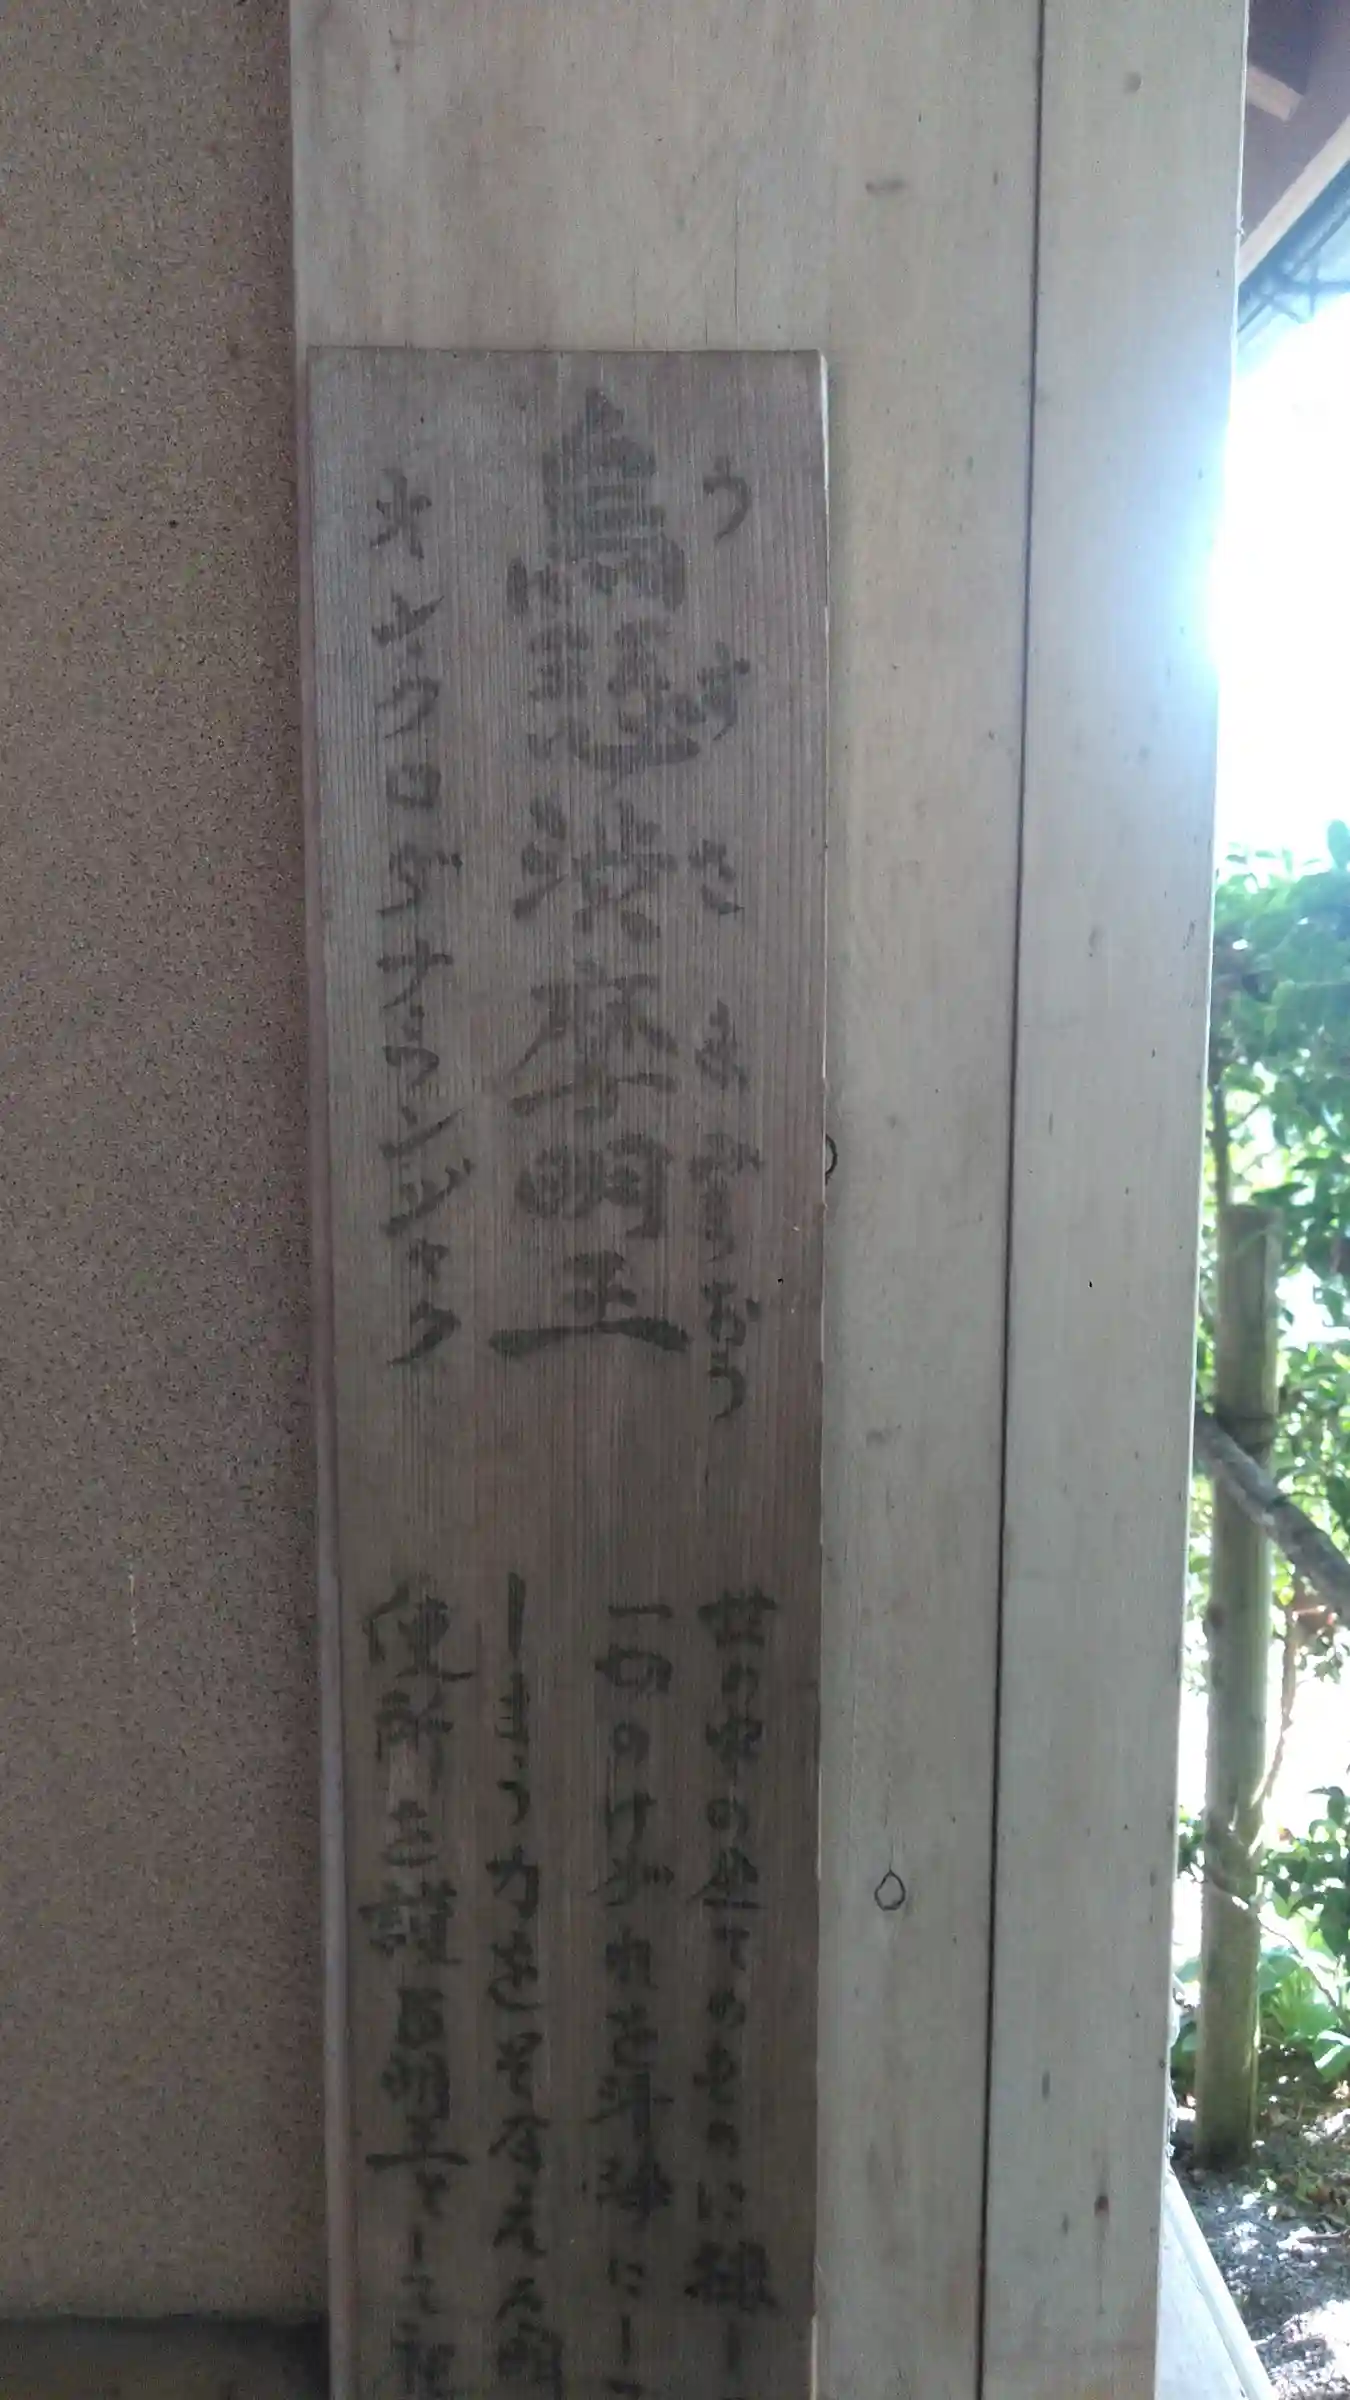 うすさまみょうおう
烏瑟渋摩明王
オンクロダナウンジャク
世の中の全てのものに接し
一切のけがれを清浄にして
しまう力をそなえた明
便所を護る明王として祀